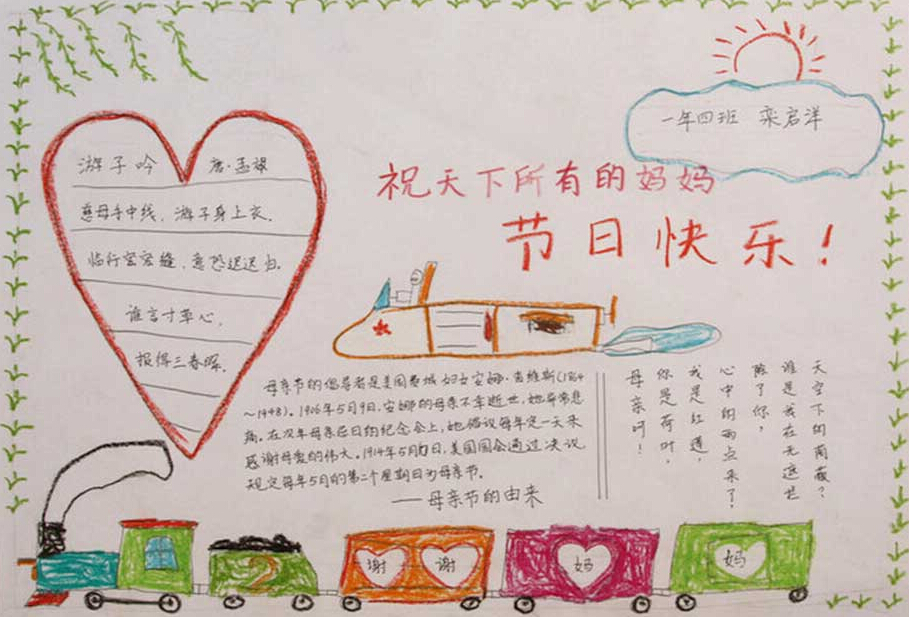 一年四班 栾启洋
祝天下所有的妈妈
节日快乐！
游子吟 唐·孟郊
慈母手中线，游子身上衣。
临行密密缝，意恐迟迟归。
谁言寸草心，
报得三春晖。
母亲节的倡导者是美国费城妇女安娜·查维斯(1864
～1948)。1906年5月9日，安娜的母亲不幸逝世，她非常悲
痛。在次年母亲忌日的纪念会上，她倡议每年定一天来
感谢母爱的伟大。1914年5月日，美国国会通过决议
规定每年5月的第二个星期日为母亲节。
——母亲节的由来
母亲呵！
你是荷叶，
我是红莲，
心中的雨点来了，
除了你，
谁是我在无遮拦
天空下的荫蔽？
谢 谢 妈 妈